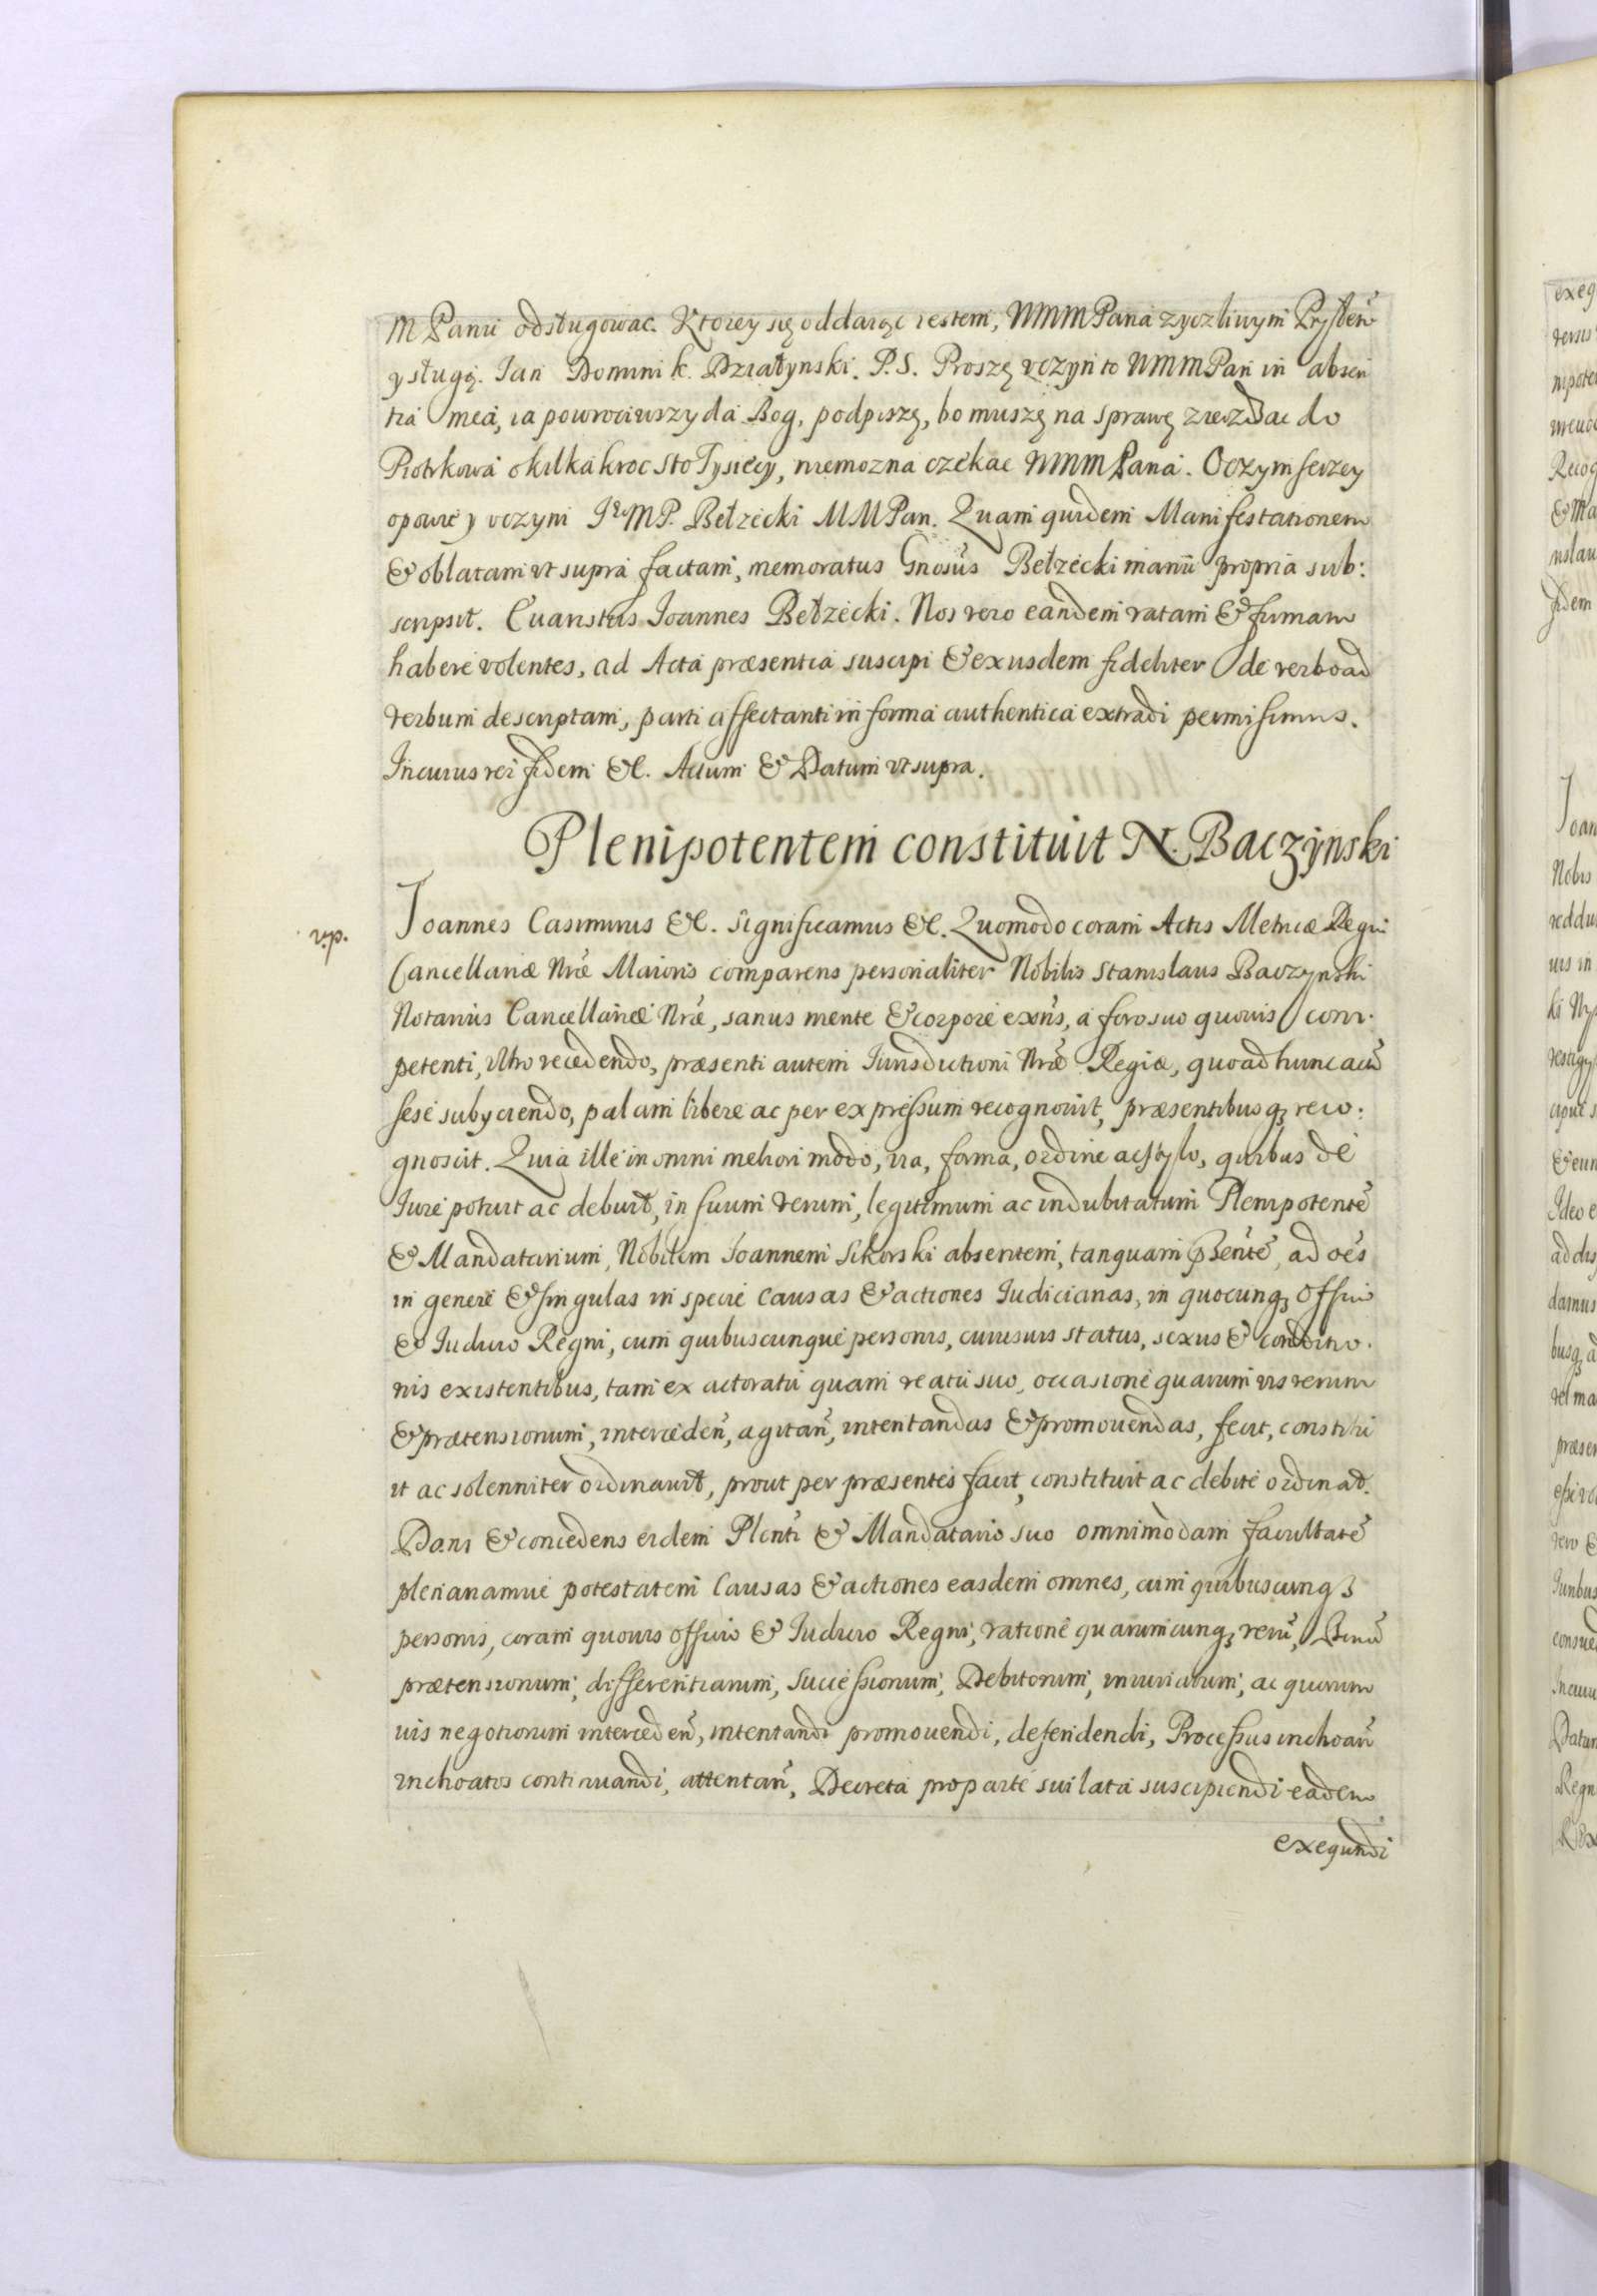 M Panu odsługować. Ktorey się oddaiąc iestem, WMMPana zyczliwym Przyłem
y sługą. Jan Dominik Działynski. P.S. Proszę vczyń to WMMPan in absen
tia mea, ia powrociwszy da Bog, podpiszę, bo muszę na sprawę ziezdzac do
Piotrkowa o kilkakroc sto Tysięcy, niemozna czekac WMMPana. Oczym szerzey
opowie y vczyni JeMP. Bełzecki MMPan. Quam quidem Manifestationem
& oblatam vt supra factam, memoratus Gnosus Bełzecki manu propria sub:
scripsit. Euaristus Joannes Bełzecki. Nos vero eandem ratam & firmam
habere volentes, ad Acta præsentia suscipi & exijsdem fideliter de verbo ad
verbum descriptam, parti affectanti in forma authentica extradi permisimus.
In cuius rei fidem &c. Actum & Datum vt supra.
Plenipotentem constituit N. Baczynski
vp.
Joannes Casimirus &c. Significamus &c. Quomodo coram Actis Metricæ Regni
Cancellariæ Nræ Maioris comparens personaliter Nobilis Stanislaus Baczynski
Notarius Cancellariæ Nræ, sanus mente & corpore exñs, a foro suo quouis com:
petenti, vltro recedendo, præsenti autem Jurisdictioni Nræ Regiæ, quoad hunc actũ
sese subyciendo, palam libere ac per expressum recognouit, præsentibusq₃ reco:
gnoscit. Quia ille in omni meliori modo, via, forma, ordine ac stylo, quibus de
Jure potuit ac debuit, in suum verum, legitimum ac indubitatum Plenipotentẽ
& Mandatarium, Nobilem Joannem Sikorski absentem, tanquam pñtẽ, ad oẽs
in genere & singulas in specie Causas & actiones Judiciarias, in quocunq₃ Officio
& Judicio Regni, cum quibuscunque personis, cuiusuis status, sexus & conditio:
nis existentibus, tam ex actoratu quam reatu suo, occasione quarumuis rerum
& prætensionum, interceden̄, agitan̄, intentandas & promouendas, fecit, constitu
it ac solenniter ordinauit, prout per præsentes facit, constituit ac debite ordinat.
Dans & concedens eidem Plenti & Mandatario suo omnimodam facultatẽ
plenariamue potestatem Causas & actiones easdem omnes, cum quibuscunq₃
personis, coram quouis officio & Judicio Regni, ratione quarumcunq₃ rerũ, Bonũ
prætensionum, differentiarum, Successionum, Debitorum, iniuriarum, ac quorum
uis negotiorum interceden̄, intentandi promouendi, defendendi, Processus inchoan̄
inchoatos continuandi, attentan̄, Decreta pro parte sui lata suscipiendi eadem
exequendi